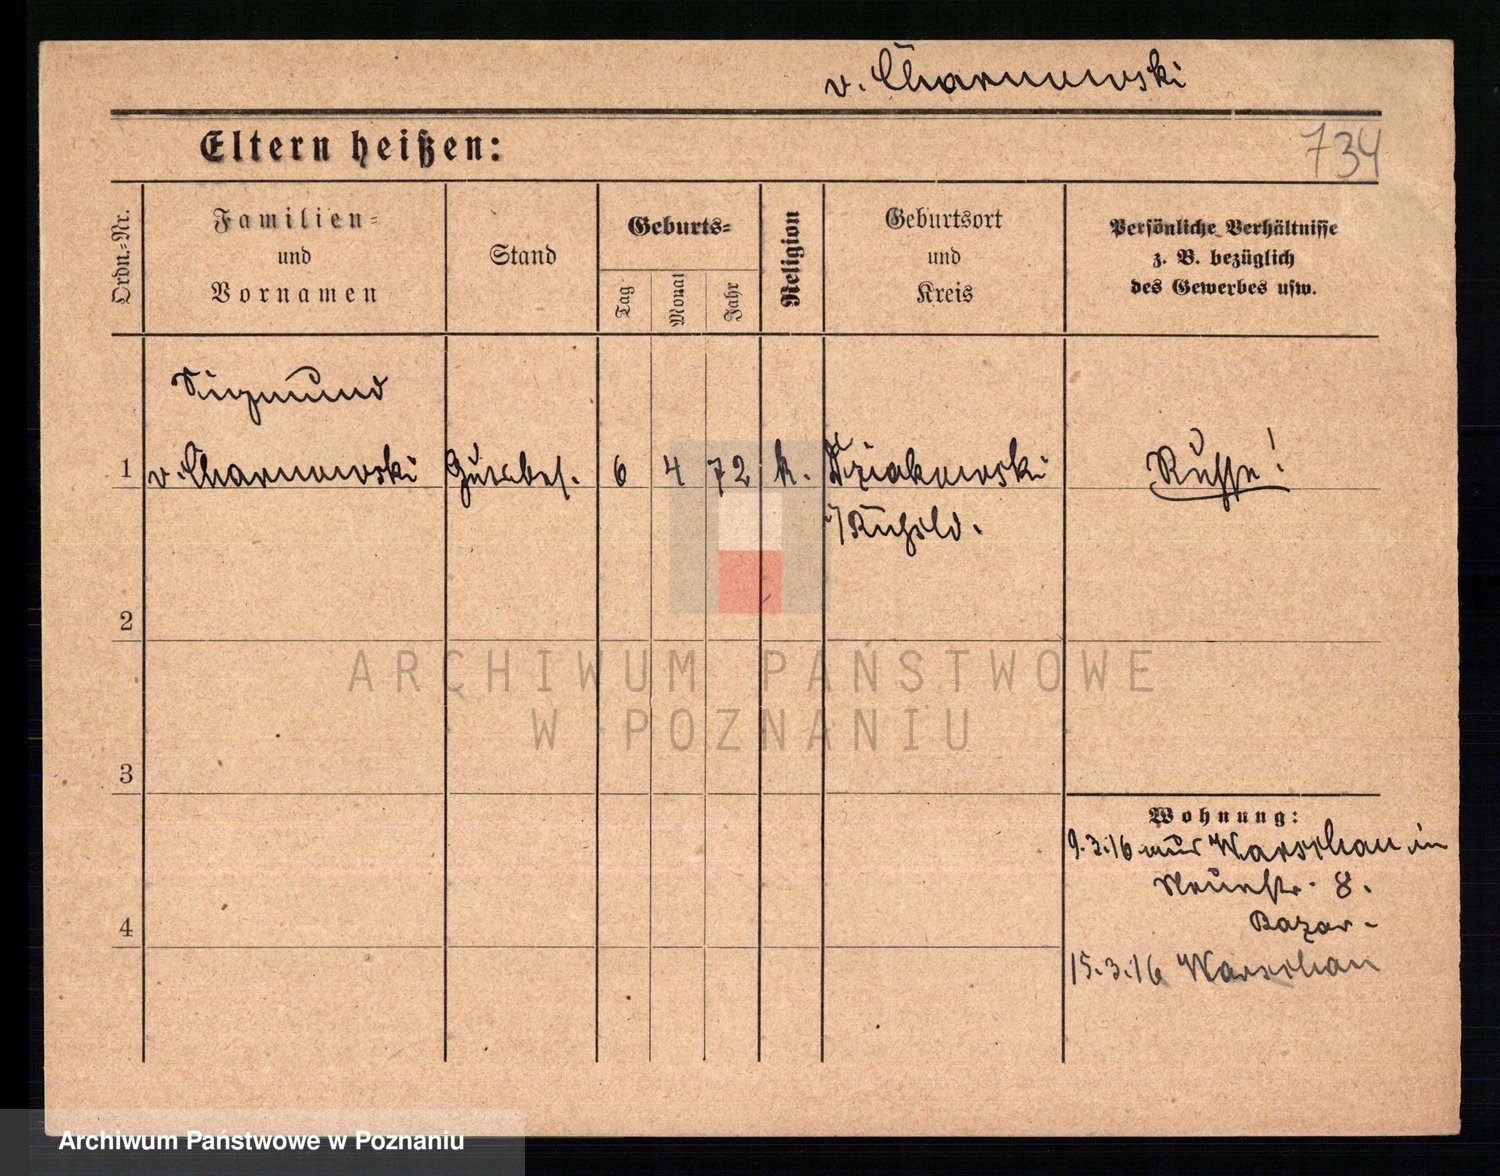 v. Charnowski
Eltern heißen:
734
Ordn.-Nr.
Familien-
und
Vornamen
Stand
Geburts-
Tag
Monat
Jahr
Religion
Geburtsort
und
Kreis
Persönliche Verhältnisse
z. B. bezüglich
des Gewerbes usw.
Sigmund
1 v. Charnowski Gutsbes. 6 4 72 k. Dziakowski Russe!
i/ Rußld.
2
3
4
Wohnung:
9.3.16 aus Warschau in
Neuestr. 8.
Bazar -
15.3.16 Warschau
ARCHIWUM PAŃSTWOWE
W POZNANIU
Archiwum Państwowe w Poznaniu